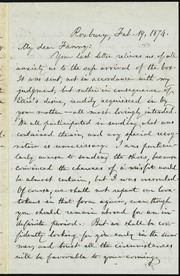 Roxbury, Feb. 19, 1874.
My dear Fanny:
Your last letter relieves us of all
anxiety as to the safe arrival of the box.
It was sent, not in accordance with my
judgment, but rather in consequence of
Ellie's desire, readily acquiesced in by
your mother—all most lovingly intended.
We all anticipated in advance, of what was
contained therein, and any special recog-
nition is unnecessary. I was particu-
larly averse to sending the shoes, having
convinced the chances of a misfit would
be almost certain, but I was overruled.
Of course, we shall not repeat our love-
tokens in that form again, even though
you should remain abroad for an in-
definite period. But we shall be con-
fidently looking for you early in the sum-
mer, and trust all the circumstances
will be favorable to your coming